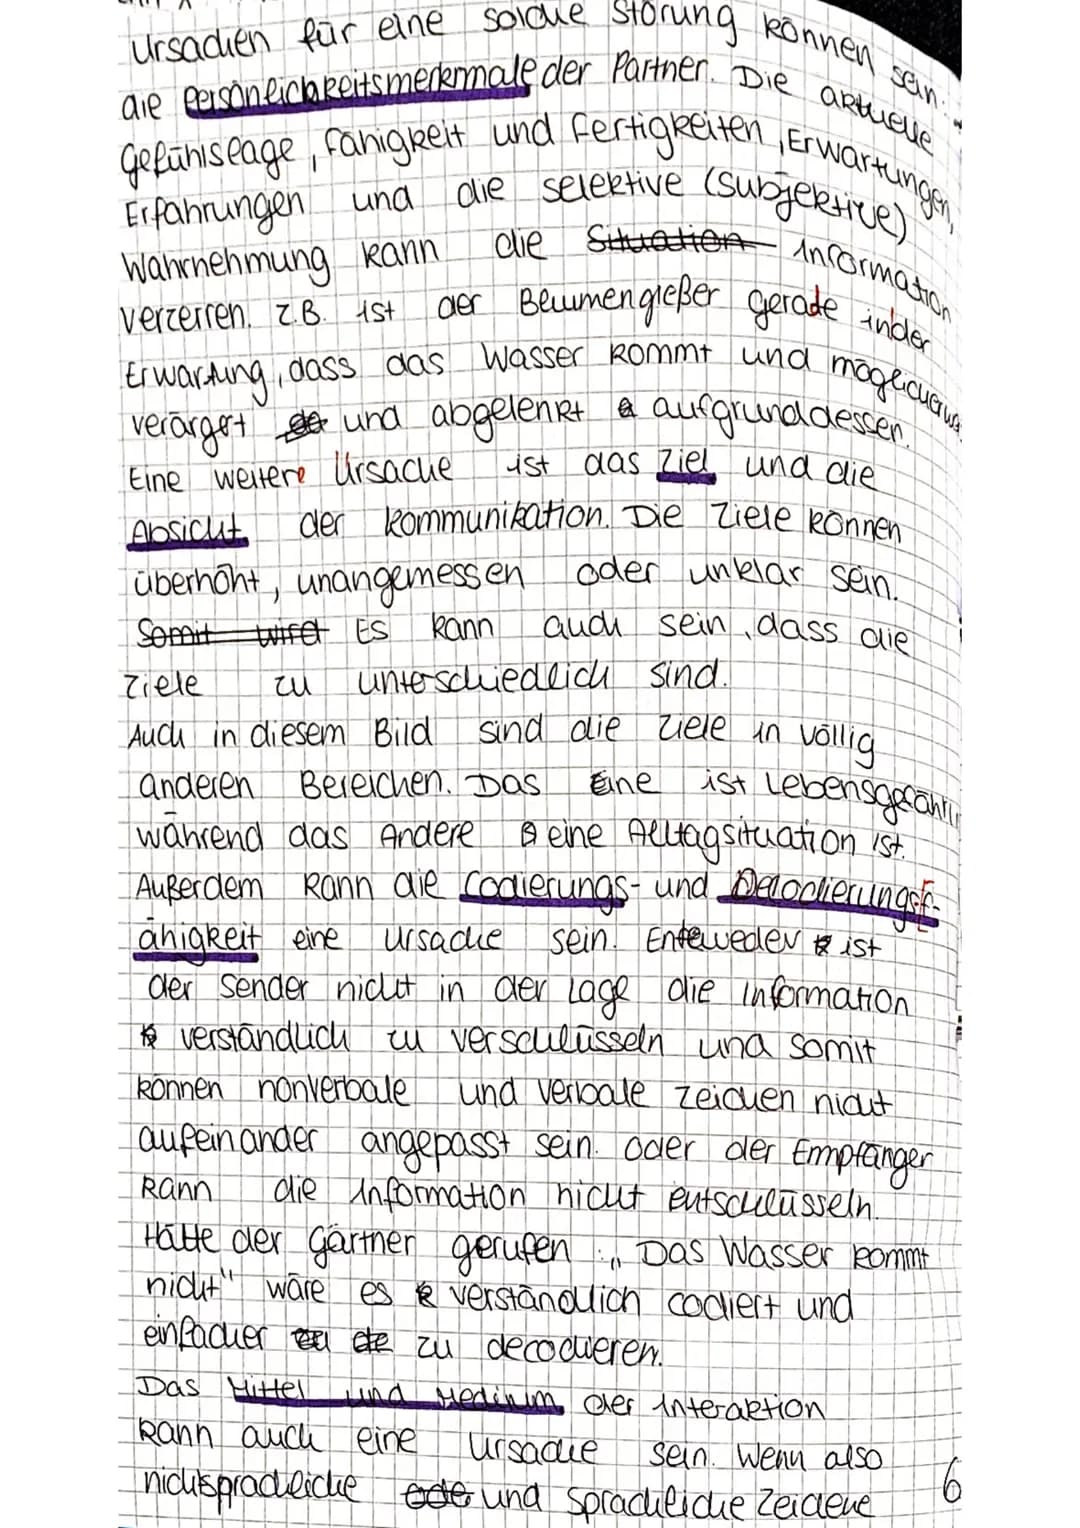 Ursachen für eine solche Störung können sein:
die Persönlichkeitsmerkmale der Partner. Die aktuelle
Gefühlslage, Fähigkeit und Fertigkeiten, Erwartungen,
Erfahrungen und die selektive (subjektive)
Wahrnehmung kann die Situation Information
verzerren. z.B. ist der Blumengießer gerade in der
Erwartung, dass das Wasser kommt und möglicherweise
verärgert und abgelenkt aufgrunddessen.
Eine weitere Ursache ist das Ziel und die
Absicht der Kommunikation. Die Ziele können
überhöht, unangemessen oder unklar sein.
Somit wird Es kann auch sein, dass die
Ziele zu unterschiedlich sind.
Auch in diesem Bild sind die Ziele in völlig
anderen Bereichen. Das Eine ist Lebensgefährli
während das Andere eine Alltagsituation ist.
Außerdem kann die Codierungs- und Decodierungsf-
ähigkeit eine Ursache sein. Enteweder ist
der Sender nicht in der Lage die Information
verständlich zu verschlüsseln und somit
können nonverbale und verbale Zeichen nicht
aufeinander angepasst sein. Oder der Empfänger
kann die Information nicht entschlüsseln.
Hätte der Gärtner gerufen: „Das Wasser kommt
nicht" wäre es verständlich codiert und
einfacher zu decodieren.
Das Mittel und Medium der Interaktion
kann auch eine Ursache sein. Wenn also
nichtsprachliche ode und sprachliche Zeichene
6